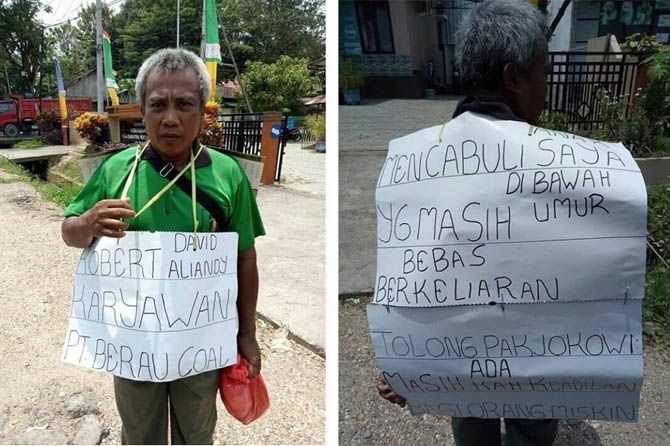 DAVID
ROBERT ALIANDY
KARYAWAN
PT. BERAU COAL
MENCABULI SAJA
DI BAWAH
YG MASIH UMUR
BEBAS
BERKELIARAN
TOLONG PAK JOKOWI:
ADA
MASIH KAH KEADILAN
BAGI ORANG MISKIN